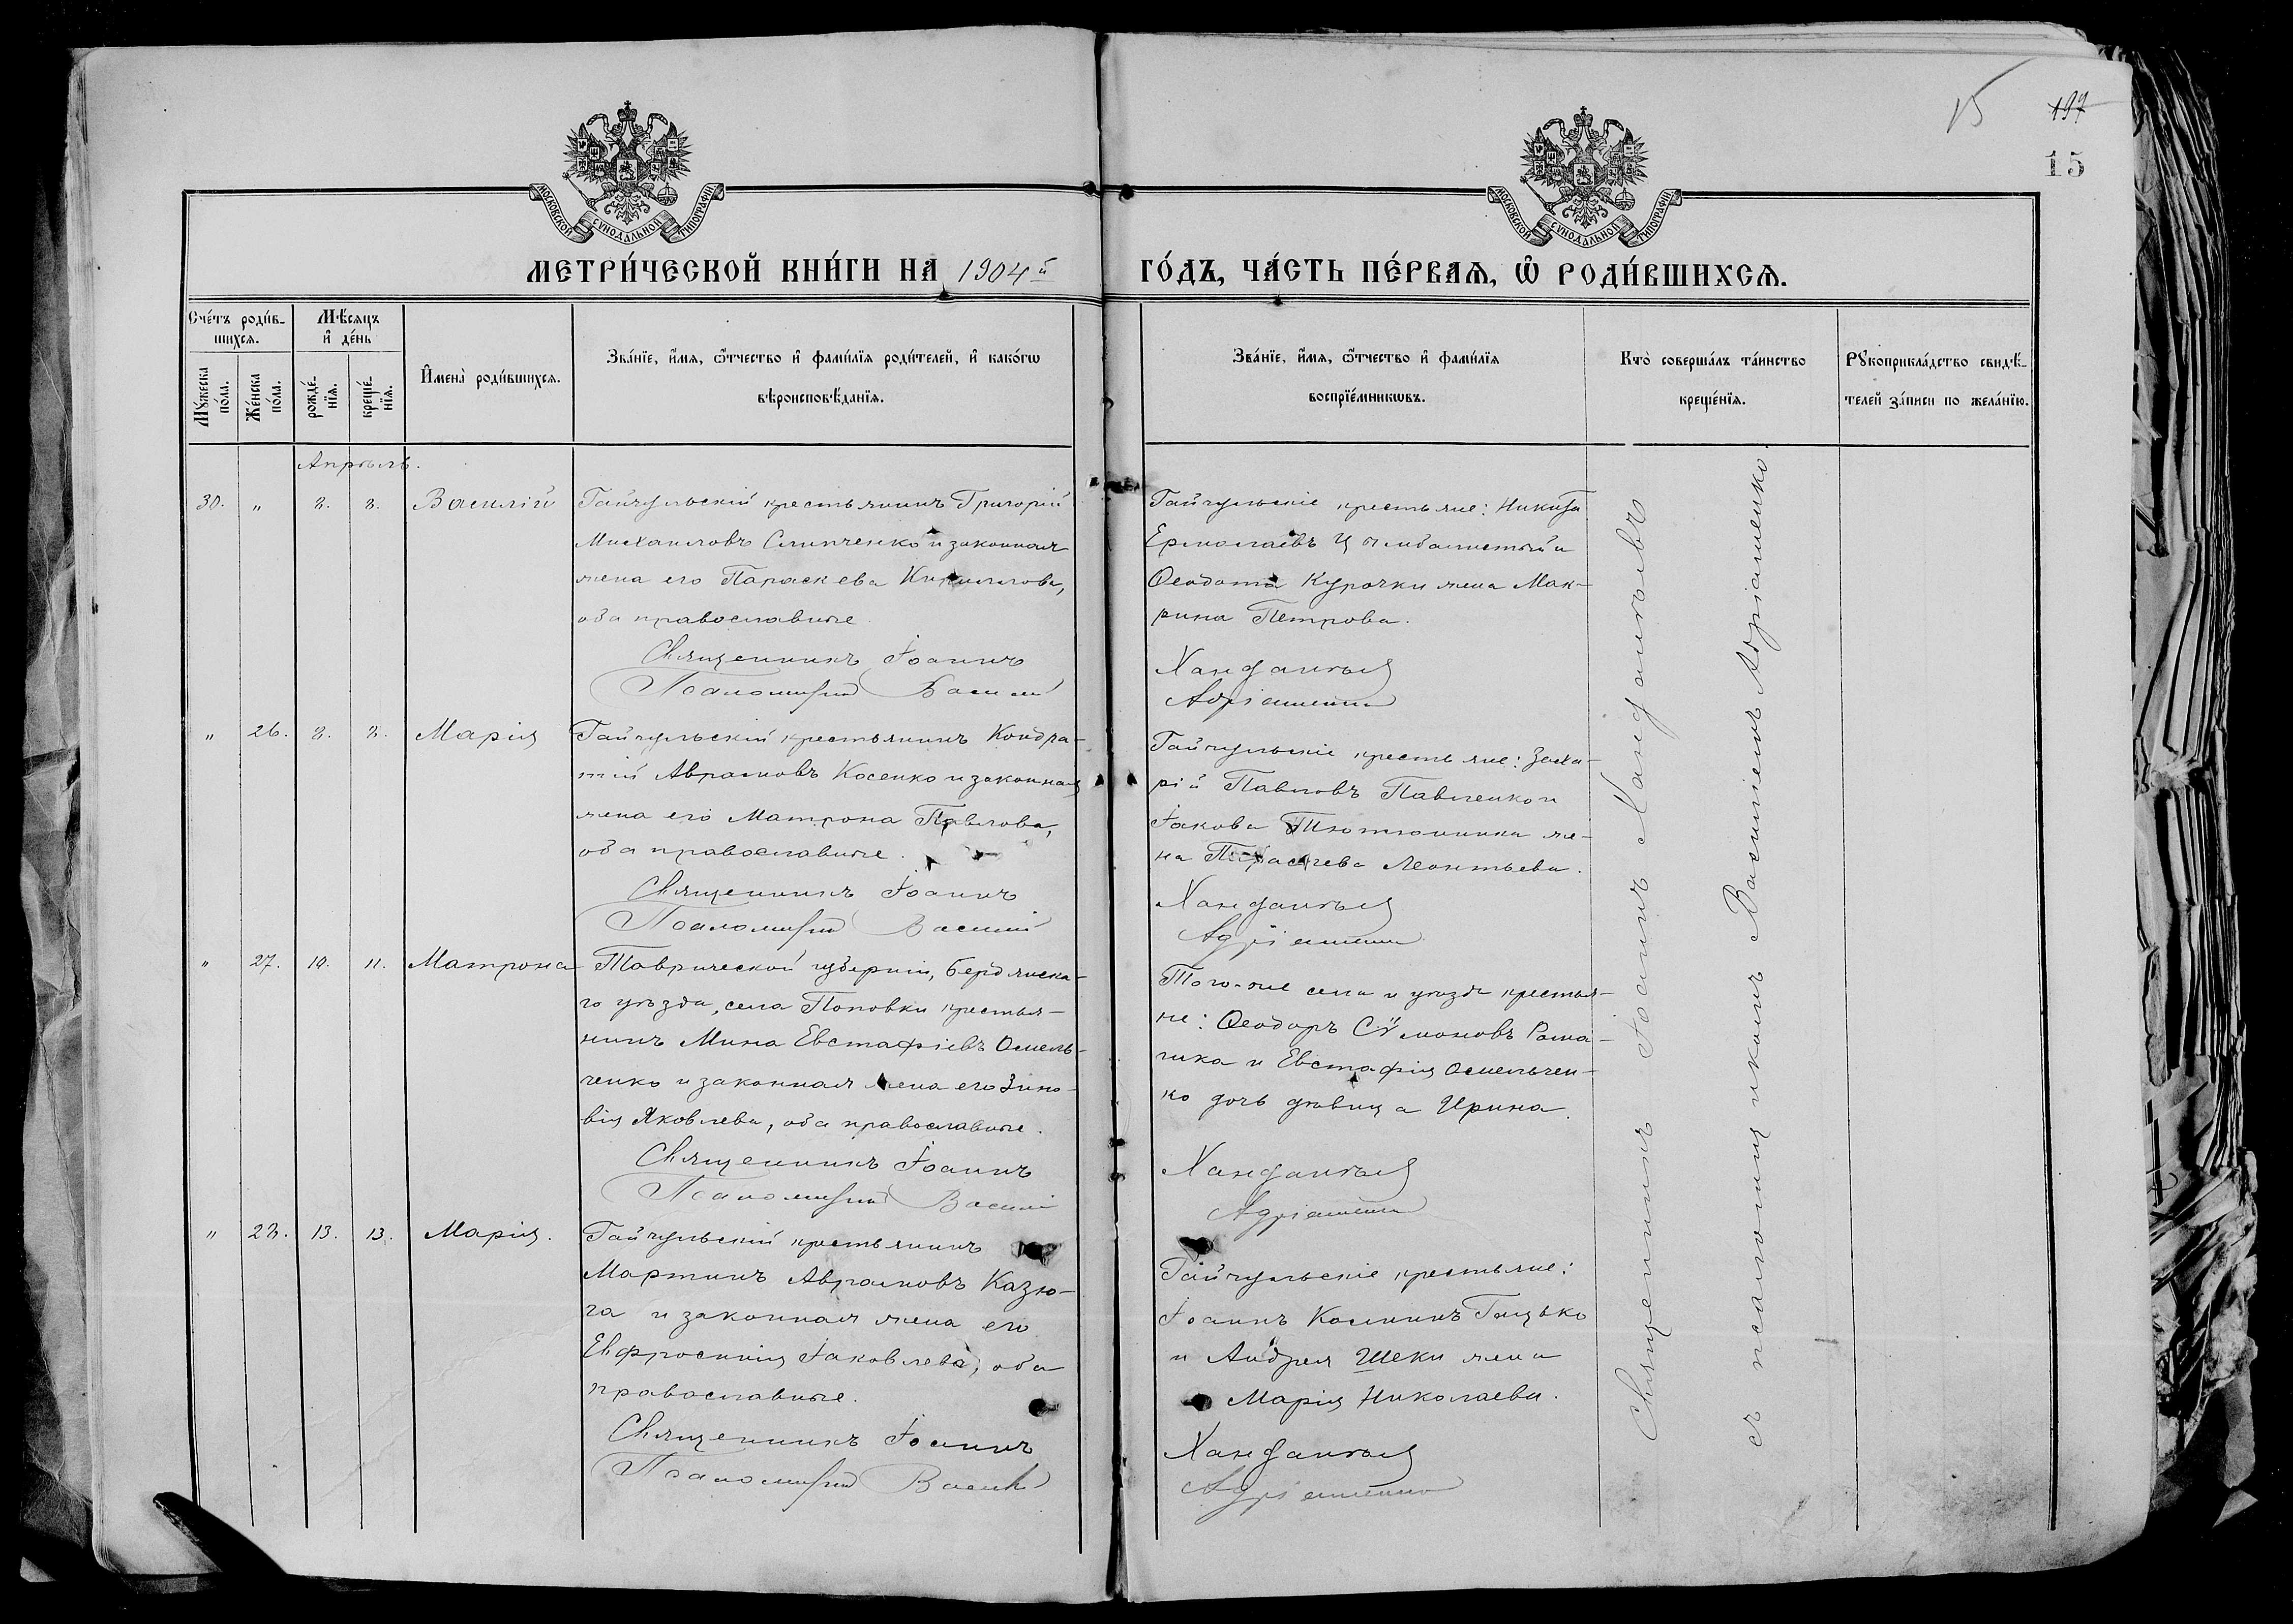 197
15
15
МОСКОВСКОЙ СѴНОДАЛЬНОЙ ТИПОГРАФІИ
МОСКОВСКОЙ СѴНОДАЛЬНОЙ ТИПОГРАФІИ
МЕТРИ́ЧЕСКОЙ КНИ́ГИ НА 1904й
ГО́ДЪ, ЧА́СТЬ ПЕ́РВАѦ, Ѡ҆ РОДИ́ВШИХСѦ.
Сче́тъ роди́в-
шихсѧ.
Мꙋ́жеска по́ла.
Же́нска по́ла.
Мѣ́сѧцъ
и҆ де́нь
рожде́-
нїѧ.
креще́-
нїѧ.
И҆мена̀ роди́вшихсѧ.
Зва́нїе, и҆́мѧ, ѻ҆́тчество и҆ фами́лїѧ роди́телей, и҆ како́гѡ
вѣроисповѣ́данїѧ.
Зва́нїе, и҆́мѧ, ѻ҆́тчество и҆ фами́лїѧ
воспрїе́мникѡвъ.
Кто̀ соверша́лъ та́инство
креще́нїѧ.
Рꙋкоприкла́дство свидѣ́-
телей за́писи по жела́нїю.
Апрѣль.
30. " 8. 8. Василій
Гайчульскій крестьянинъ Григорій
Михаиловъ Слипченко и законная
жена его Параскева Кириллова,
оба православные.
Священникъ Іоаннъ
Псаломщикъ Василій
Гайчульскіе крестьяне: Никита
Ермолаевъ Цымбалистый и
Ѳеодота Курочки жена Мак-
рина Петрова.
Хандалѣев
Адріаненко
" 26. 8. 8. Марія
Гайчульскій крестьянинъ Кондра-
тій Аврамовъ Косенко и законная
жена его Матрона Павлова,
оба православные.
Священникъ Іоаннъ
Псаломщикъ Василій
Гайчульскіе крестьяне: Заха-
рій Павловъ Павленко и
Іакова Тютюнника же-
на Параскева Леонтьева.
Хандалѣев
Адріаненко
" 27. 10. 11. Матрона
Таврической губерніи, Бердянска-
го уѣзда, села Поповки крестья-
нинъ Мина Евстафіевъ Омель-
ченко и законная жена его Зино-
вія Яковлева, оба православные.
Священникъ Іоаннъ
Псаломщикъ Василій
Того-же села и уѣзда крестья-
не: Ѳеодоръ Сѵмоновъ Рома-
чика и Евстафія Омельчен-
ко дочь дѣвица Ирина.
Хандалѣев
Адріаненко
" 28. 13. 13. Марія.
Гайчульскій крестьянинъ
Мартинъ Аврамовъ Казю-
га и законная жена его
Евфросинія Іаковлева, оба
православные.
Священникъ Іоаннъ
Псаломщикъ Василій
Гайчульскіе крестьяне:
Іоаннъ Косминъ Гацько
и Андрея Шеки жена
Марія Николаева.
Хандалѣев
Адріаненко
Священникъ Іоаннъ Хандалѣевъ
съ псаломщикомъ Василіемъ Адріаненко.